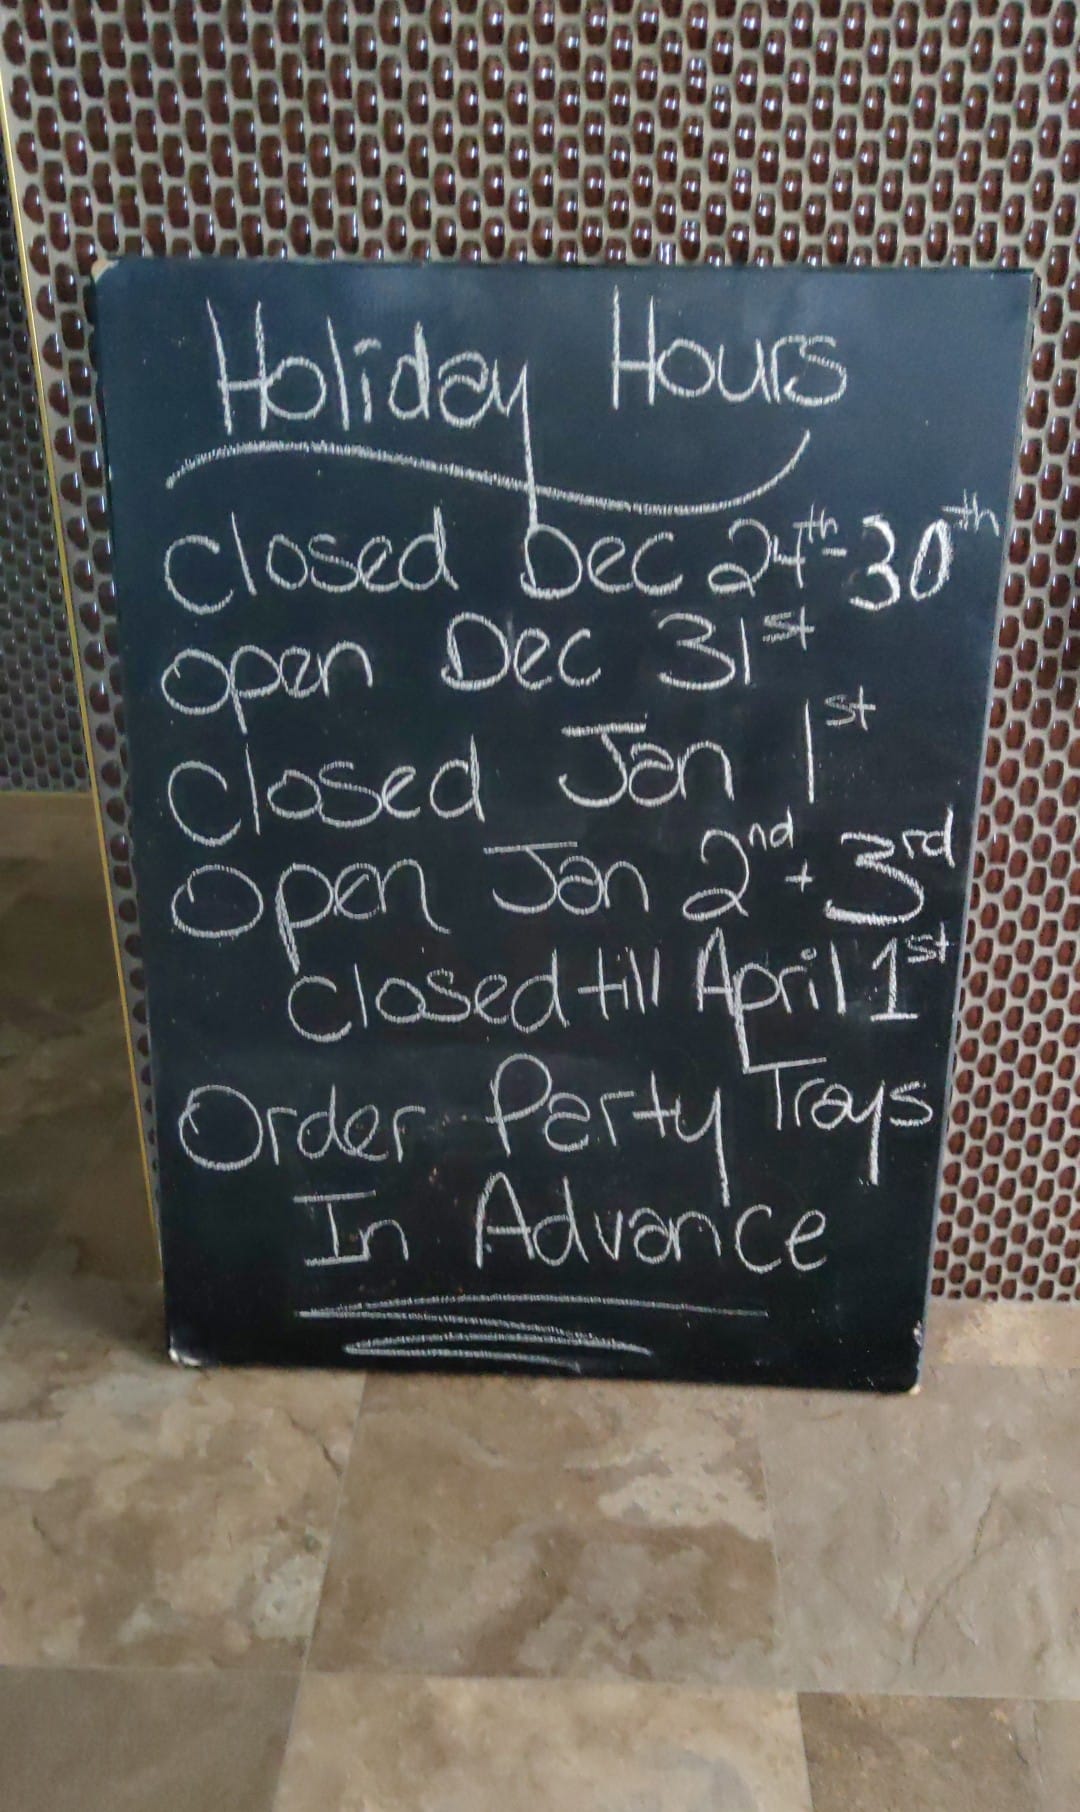 Holiday Hours
closed Dec 24th-30th
open Dec 31st
closed Jan 1st
Open Jan 2nd + 3rd
closed till April 1st
Order Party Trays
In Advance